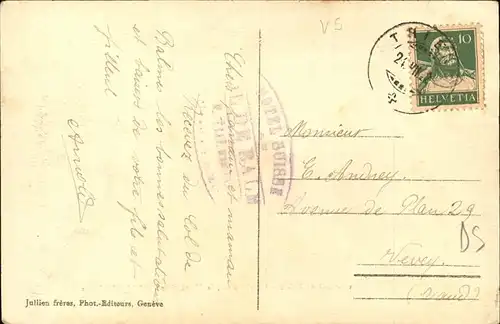 V5
10
HELVETIA
HOTEL SUISSE
Chers Parrain et maman
Recevez du Col de
Balme les bonnes salutations
et baisers de votre fils et
filleul
Arnold
Monsieur
E. Andrey
Avenue de Plan 29
Vevey
(Vaud)
DS
Jullien frères, Phot.-Editeurs, Genève